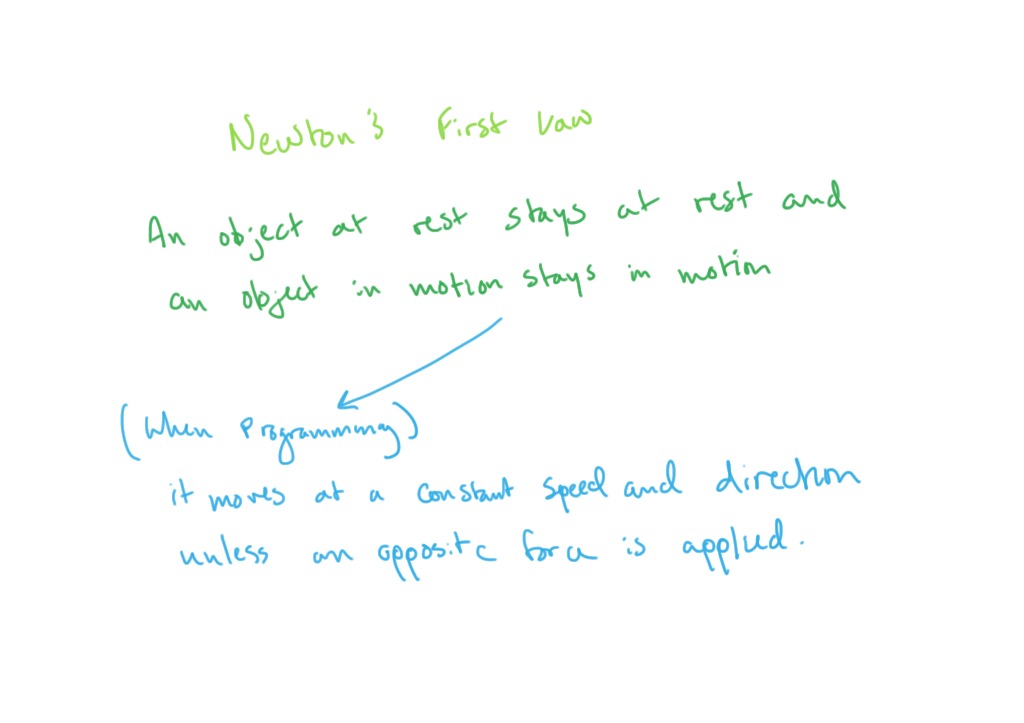 Newton's First Law
An object at rest stays at rest and
an object in motion stays in motion
(When Programming)
it moves at a constant speed and direction
unless an opposite force is applied.